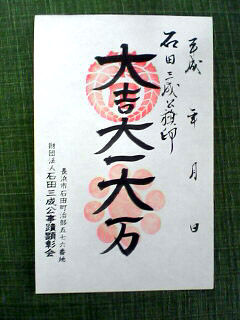 平成 年 月 日
石田三成公旗印
大吉大一大万
長浜市石田町治部五七六番地
財団法人石田三成公事蹟顕彰会